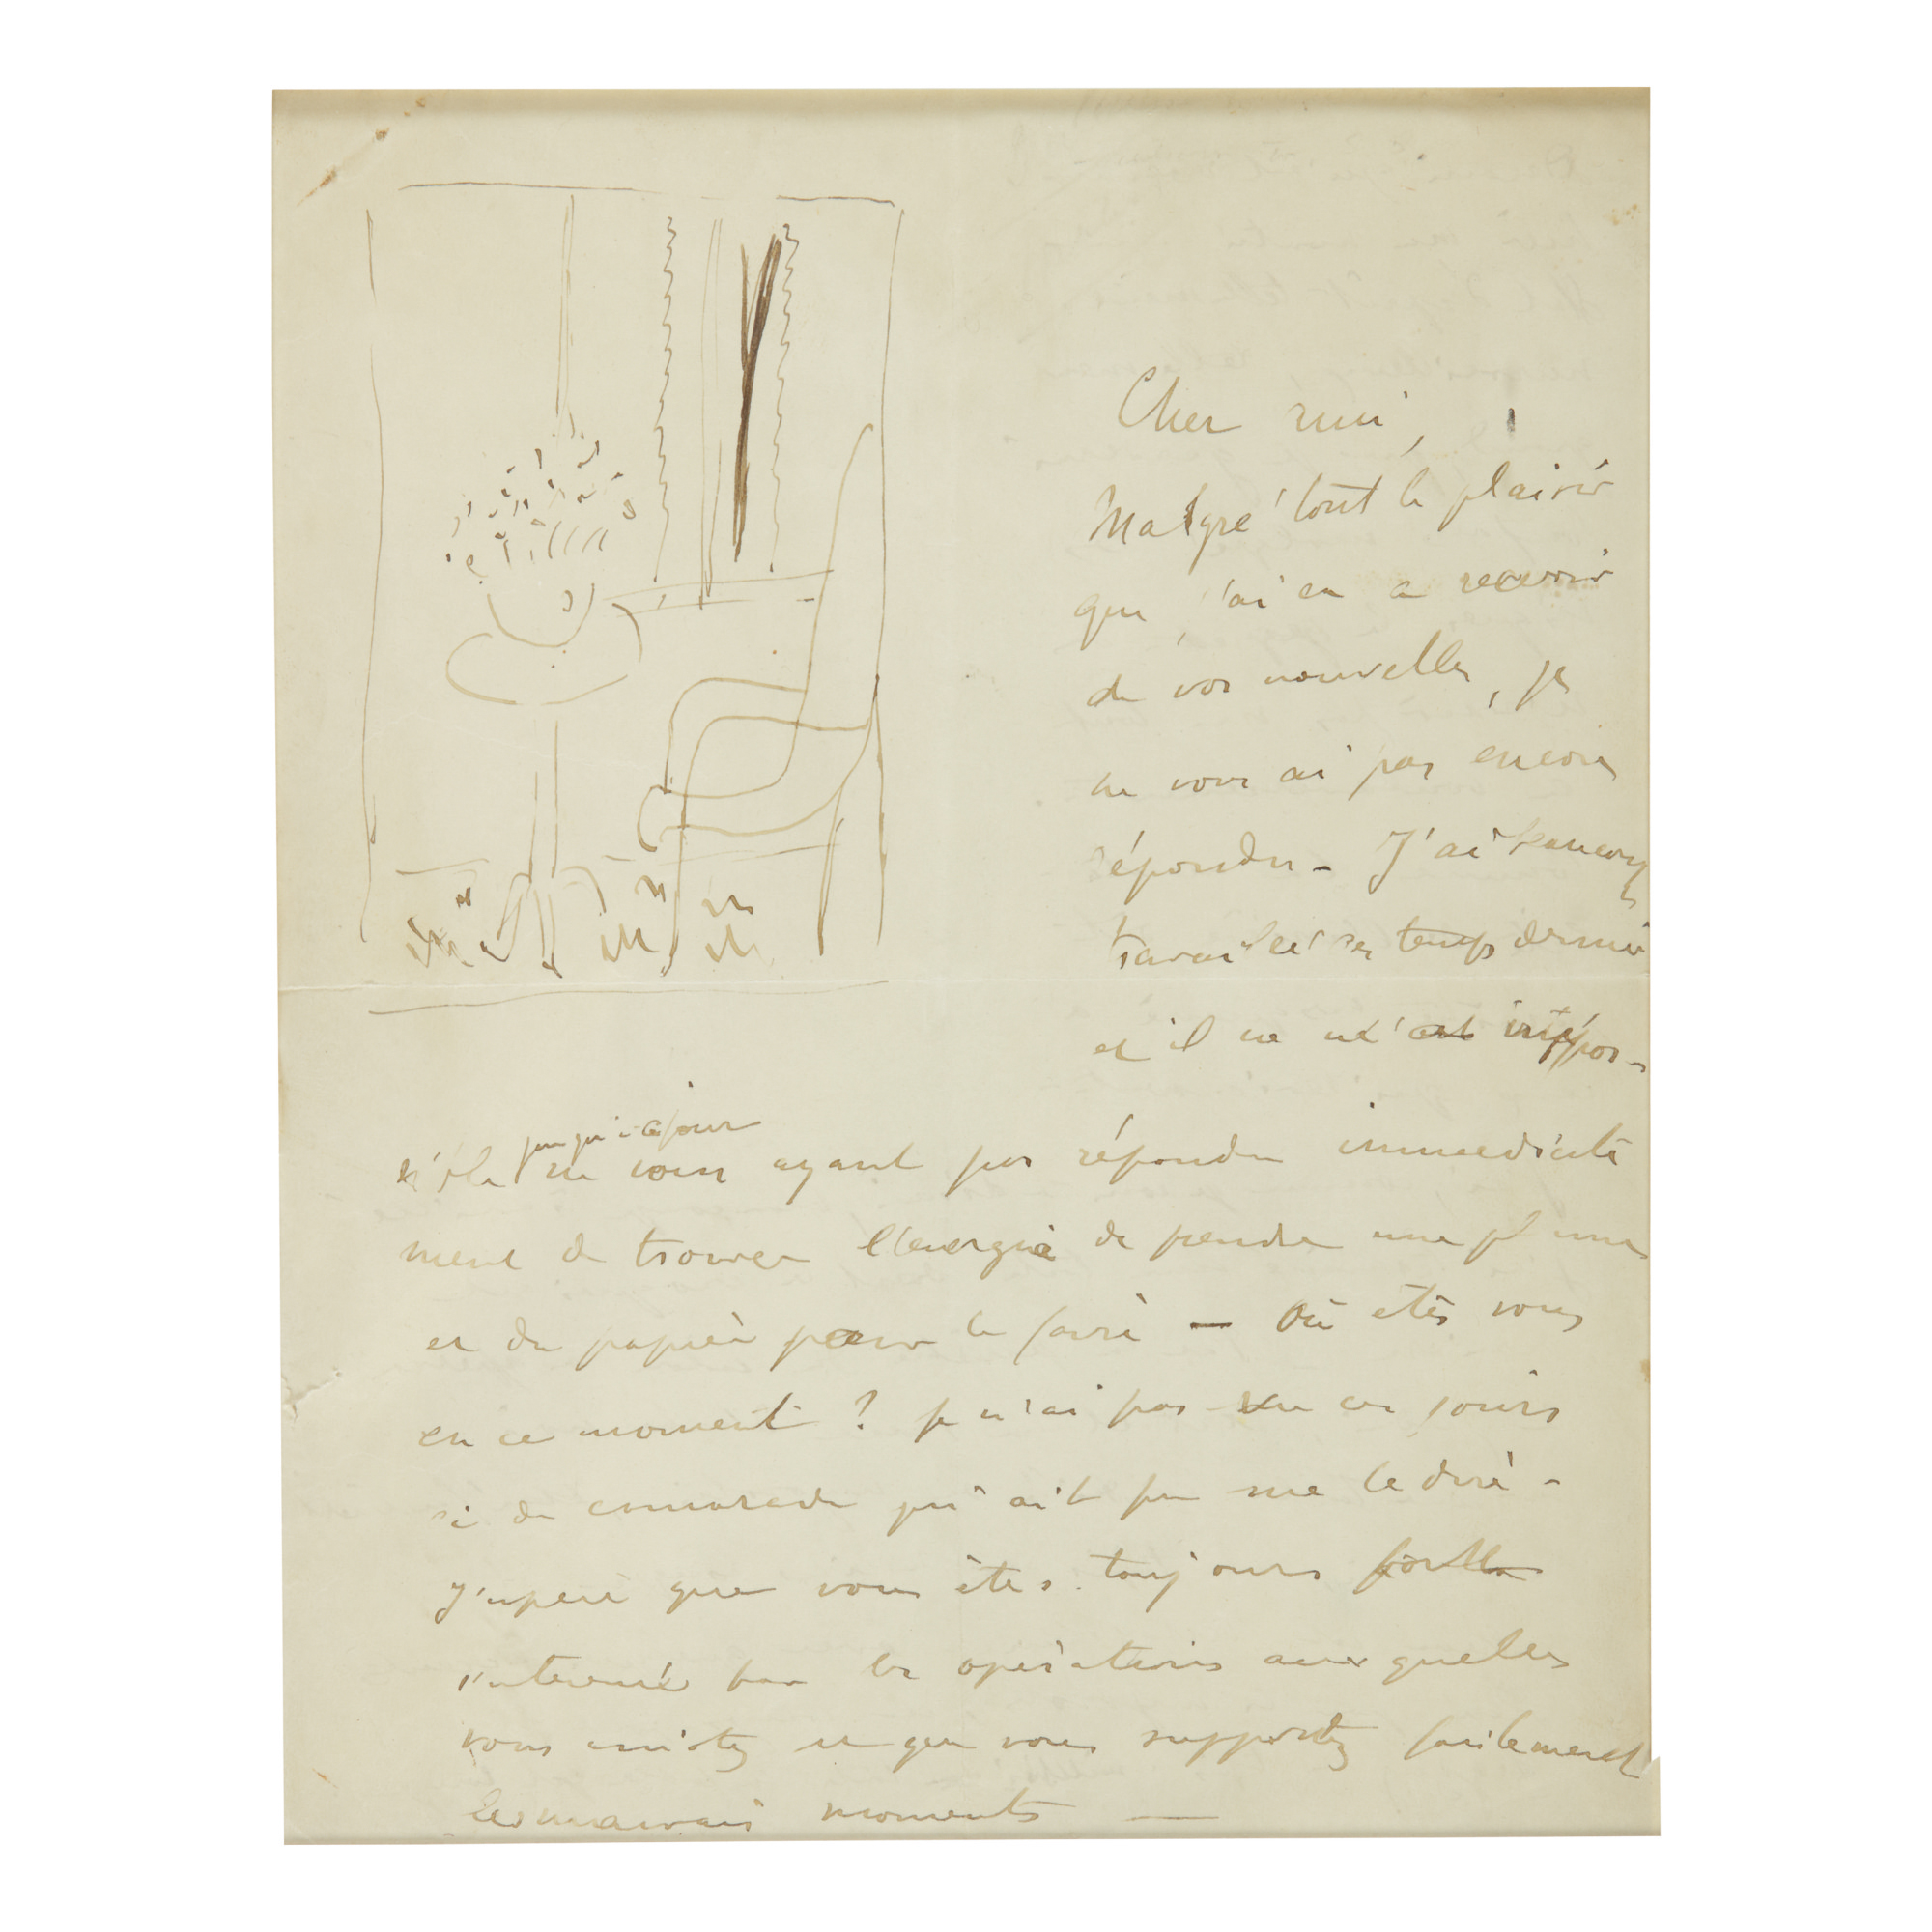 Cher ami,
Malgré tout le plaisir
que j'ai eu a recevoir
de vos nouvelles, je
ne vous ai pas encore
répondu - J'ai beaucoup
travaillé ces temps dernier
et il ne m'est impos-
jusqu'à ce jour
sible ne vous ayant pas répondu immediate
ment de trouver l'énergie de prendre une plume
et du papier pour le faire — Où etes vous
en ce moment ? je n'ai pas vu ces jours
ci de camarade qui ait pu me le dire -
J'espere que vous êtes toujours
interessé par les opérations auxquelles
vous assistez et que vous supportez facilement
les mauvais moments —